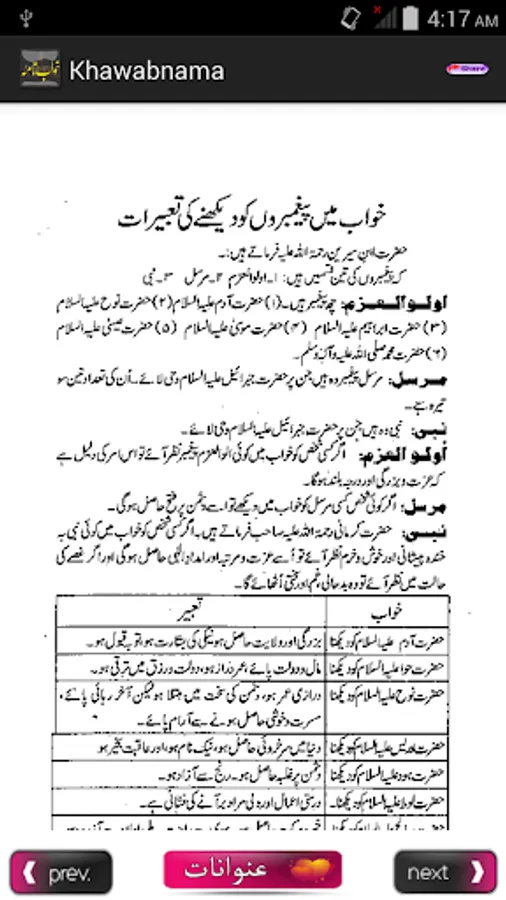 4:17 AM
خواب نامہ
Khawabnama
Share
خواب میں پیغمبروں کو دیکھنے کی تعبیرات
حضرت ابن سیرین رحمۃ اللہ علیہ فرماتے ہیں:۔
کہ پیغمبروں کی تین قسمیں ہیں: ۱۔ اولوالعزم ۲۔ مرسل ۳۔ نبی
اولو العزم: چھ پیغمبر ہیں۔ (۱) حضرت آدم علیہ السلام (۲) حضرت نوح علیہ السلام
(۳) حضرت ابراہیم علیہ السلام (۴) حضرت موسیٰ علیہ السلام (۵) حضرت عیسیٰ علیہ السلام
(۶) حضرت محمد صلی اللہ علیہ وآلہٖ وسلم۔
مرسل: مرسل پیغمبر وہ ہیں جن پر حضرت جبرائیل علیہ السلام وحی لائے۔ اُن کی تعداد تین سو
تیرہ ہے۔
نبی: نبی وہ ہیں جن پر حضرت جبرائیل علیہ السلام وحی لائے۔
اُولو العزم: اگر کسی شخص کو خواب میں کوئی الوالعزم پیغمبر نظر آئے تو اس امر کی دلیل ہے
کہ عزت و بزرگی اور درجہ بلند ہوگا۔
مرسل: اگر کوئی شخص کسی مرسل کو خواب میں دیکھے تو اسے دشمن پر فتح حاصل ہوگی۔
نبی: حضرت کرمانی رحمۃ اللہ علیہ صاحب فرماتے ہیں۔ اگر کسی شخص کو خواب میں کوئی نبی بہ
خندہ پیشانی اور خوش و خرم نظر آئے تو اُسے عزت و مرتبہ اور امداد الٰہی حاصل ہوگی اور اگر غصے کی
حالت میں نظر آئے تو وہ بدحالی غم اور سختی اُٹھائے گا۔
خواب تعبیر
حضرت آدم علیہ السلام کو دیکھنا بزرگی اور ولایت حاصل ہو نیکی کی بشارت ہو، توبہ قبول ہو۔
حضرت حوا علیہا السلام کو دیکھنا مال و دولت پائے، عمر دراز ہو، دولت ورزق میں ترقی ہو۔
حضرت نوح علیہ السلام کو دیکھنا درازی عمر ہو، دشمن کی سخت میں مبتلا ہو لیکن آخر رہائی پائے،
مسرت و خوشی حاصل ہونے سے آرام پائے۔
حضرت ادریس علیہ السلام کو دیکھنا دنیا میں سرخروئی حاصل ہو، نیک نام ہو، اور عاقبت بخیر ہو
حضرت ہود علیہ السلام کو دیکھنا دشمن پر غلبہ حاصل ہو۔ رنج سے آزاد ہو۔
حضرت لوط علیہ السلام کو دیکھنا۔ درستی اعمال اور دلی مراد بر آنے کی نشانی ہے۔
prev.
عنوانات
next